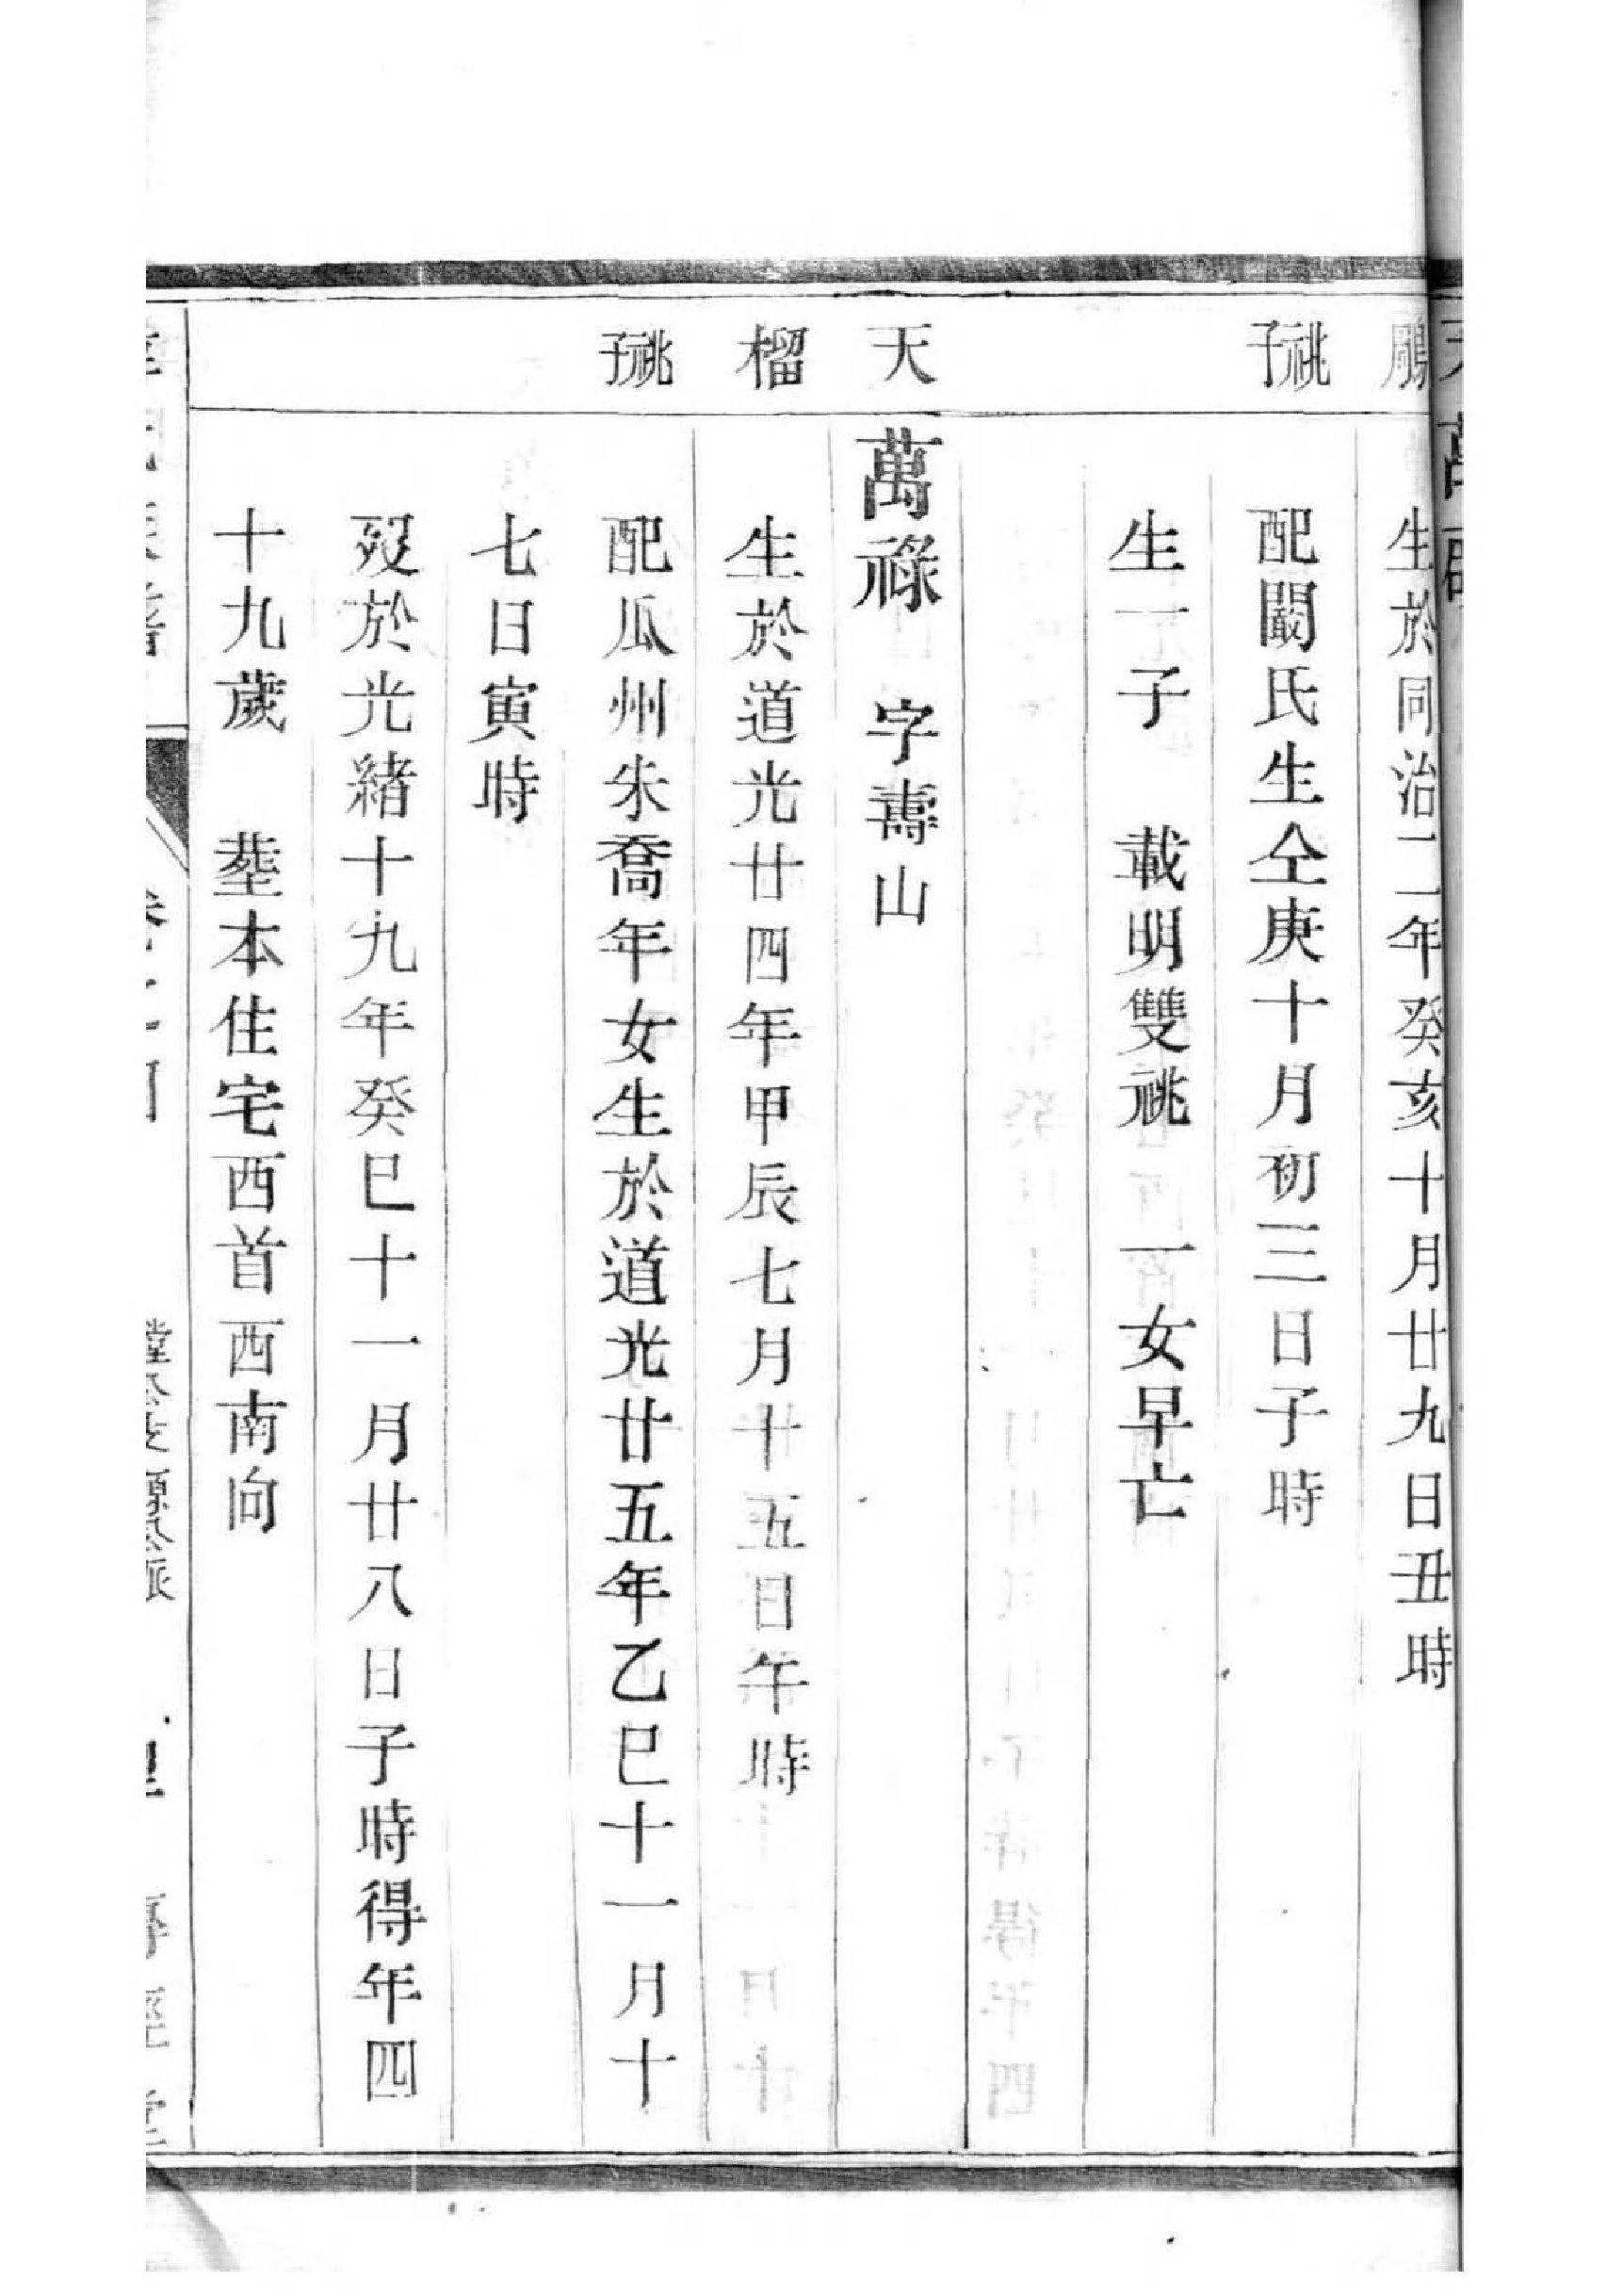 鵬
生於同治二年癸亥十月廿九日丑時
祧子
配闞氏生仝庚十月初三日子時
生一子 載明雙祧 一女早亡
天
萬祿 字壽山
榴
生於道光廿四年甲辰七月十五日午時
祧子
配瓜州朱喬年女生於道光廿五年乙巳十一月十
七日寅時
歿於光緒十九年癸巳十一月廿八日子時得年四
十九歲 塟本住宅西首西南向